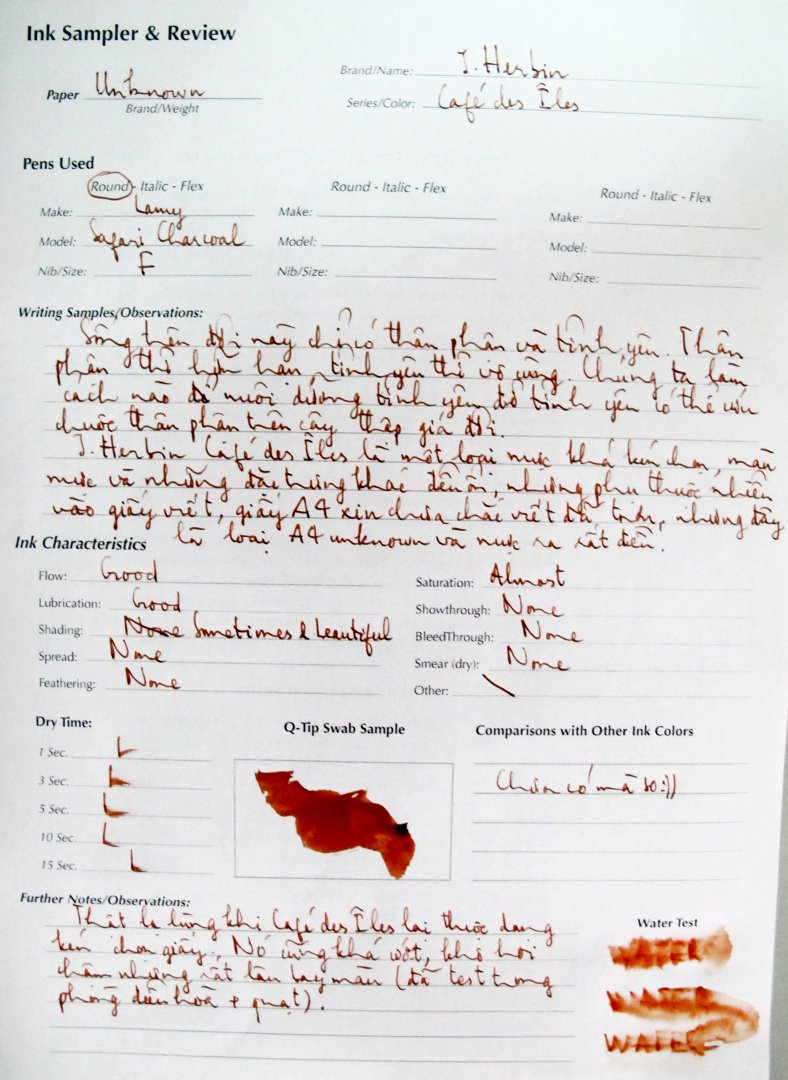 Ink Sampler & Review
Paper Unknown
Brand/Weight
Brand/Name: J. Herbin
Series/Color: Café des Îles
Pens Used
Round - Italic - Flex
Make: Lamy
Model: Safari Charcoal
Nib/Size: F
Round - Italic - Flex
Make:
Model:
Nib/Size:
Round - Italic - Flex
Make:
Model:
Nib/Size:
Writing Samples/Observations:
Sống trên đời này chỉ có thân phận và tình yêu. Thân
phận thì hữu hạn, tình yêu thì vô cùng. Chúng ta làm
cách nào để nuôi dưỡng tình yêu để tình yêu có thể cứu
chuộc thân phận trên cây thập giá đời.
J. Herbin Café des Îles là một loại mực khá kén chọn, màu
mực và những đặc trưng khác đều ổn, nhưng phụ thuộc nhiều
vào giấy viết, giấy A4 xịn chưa chắc viết đã, nhưng đây
là loại A4 unknown và mực ra rất điền.
Ink Characteristics
Flow: Good
Lubrication: Good
Shading: None Sometimes & beautiful
Spread: None
Feathering: None
Saturation: Almost
Showthrough: None
BleedThrough: None
Smear (dry): None
Other: \
Dry Time:
1 Sec.
3 Sec.
5 Sec.
10 Sec.
15 Sec.
Q-Tip Swab Sample
Comparisons with Other Ink Colors
Chưa có mà so :))
Further Notes/Observations:
Thật lạ lùng khi Café des Îles lại thuộc dạng
kén chọn giấy. Nó cũng khá ướt, khô hơi
chậm nhưng rất lâu bay màu (đã test trong
phòng điều hoà + quạt).
Water Test
WATER
WATER
WATER